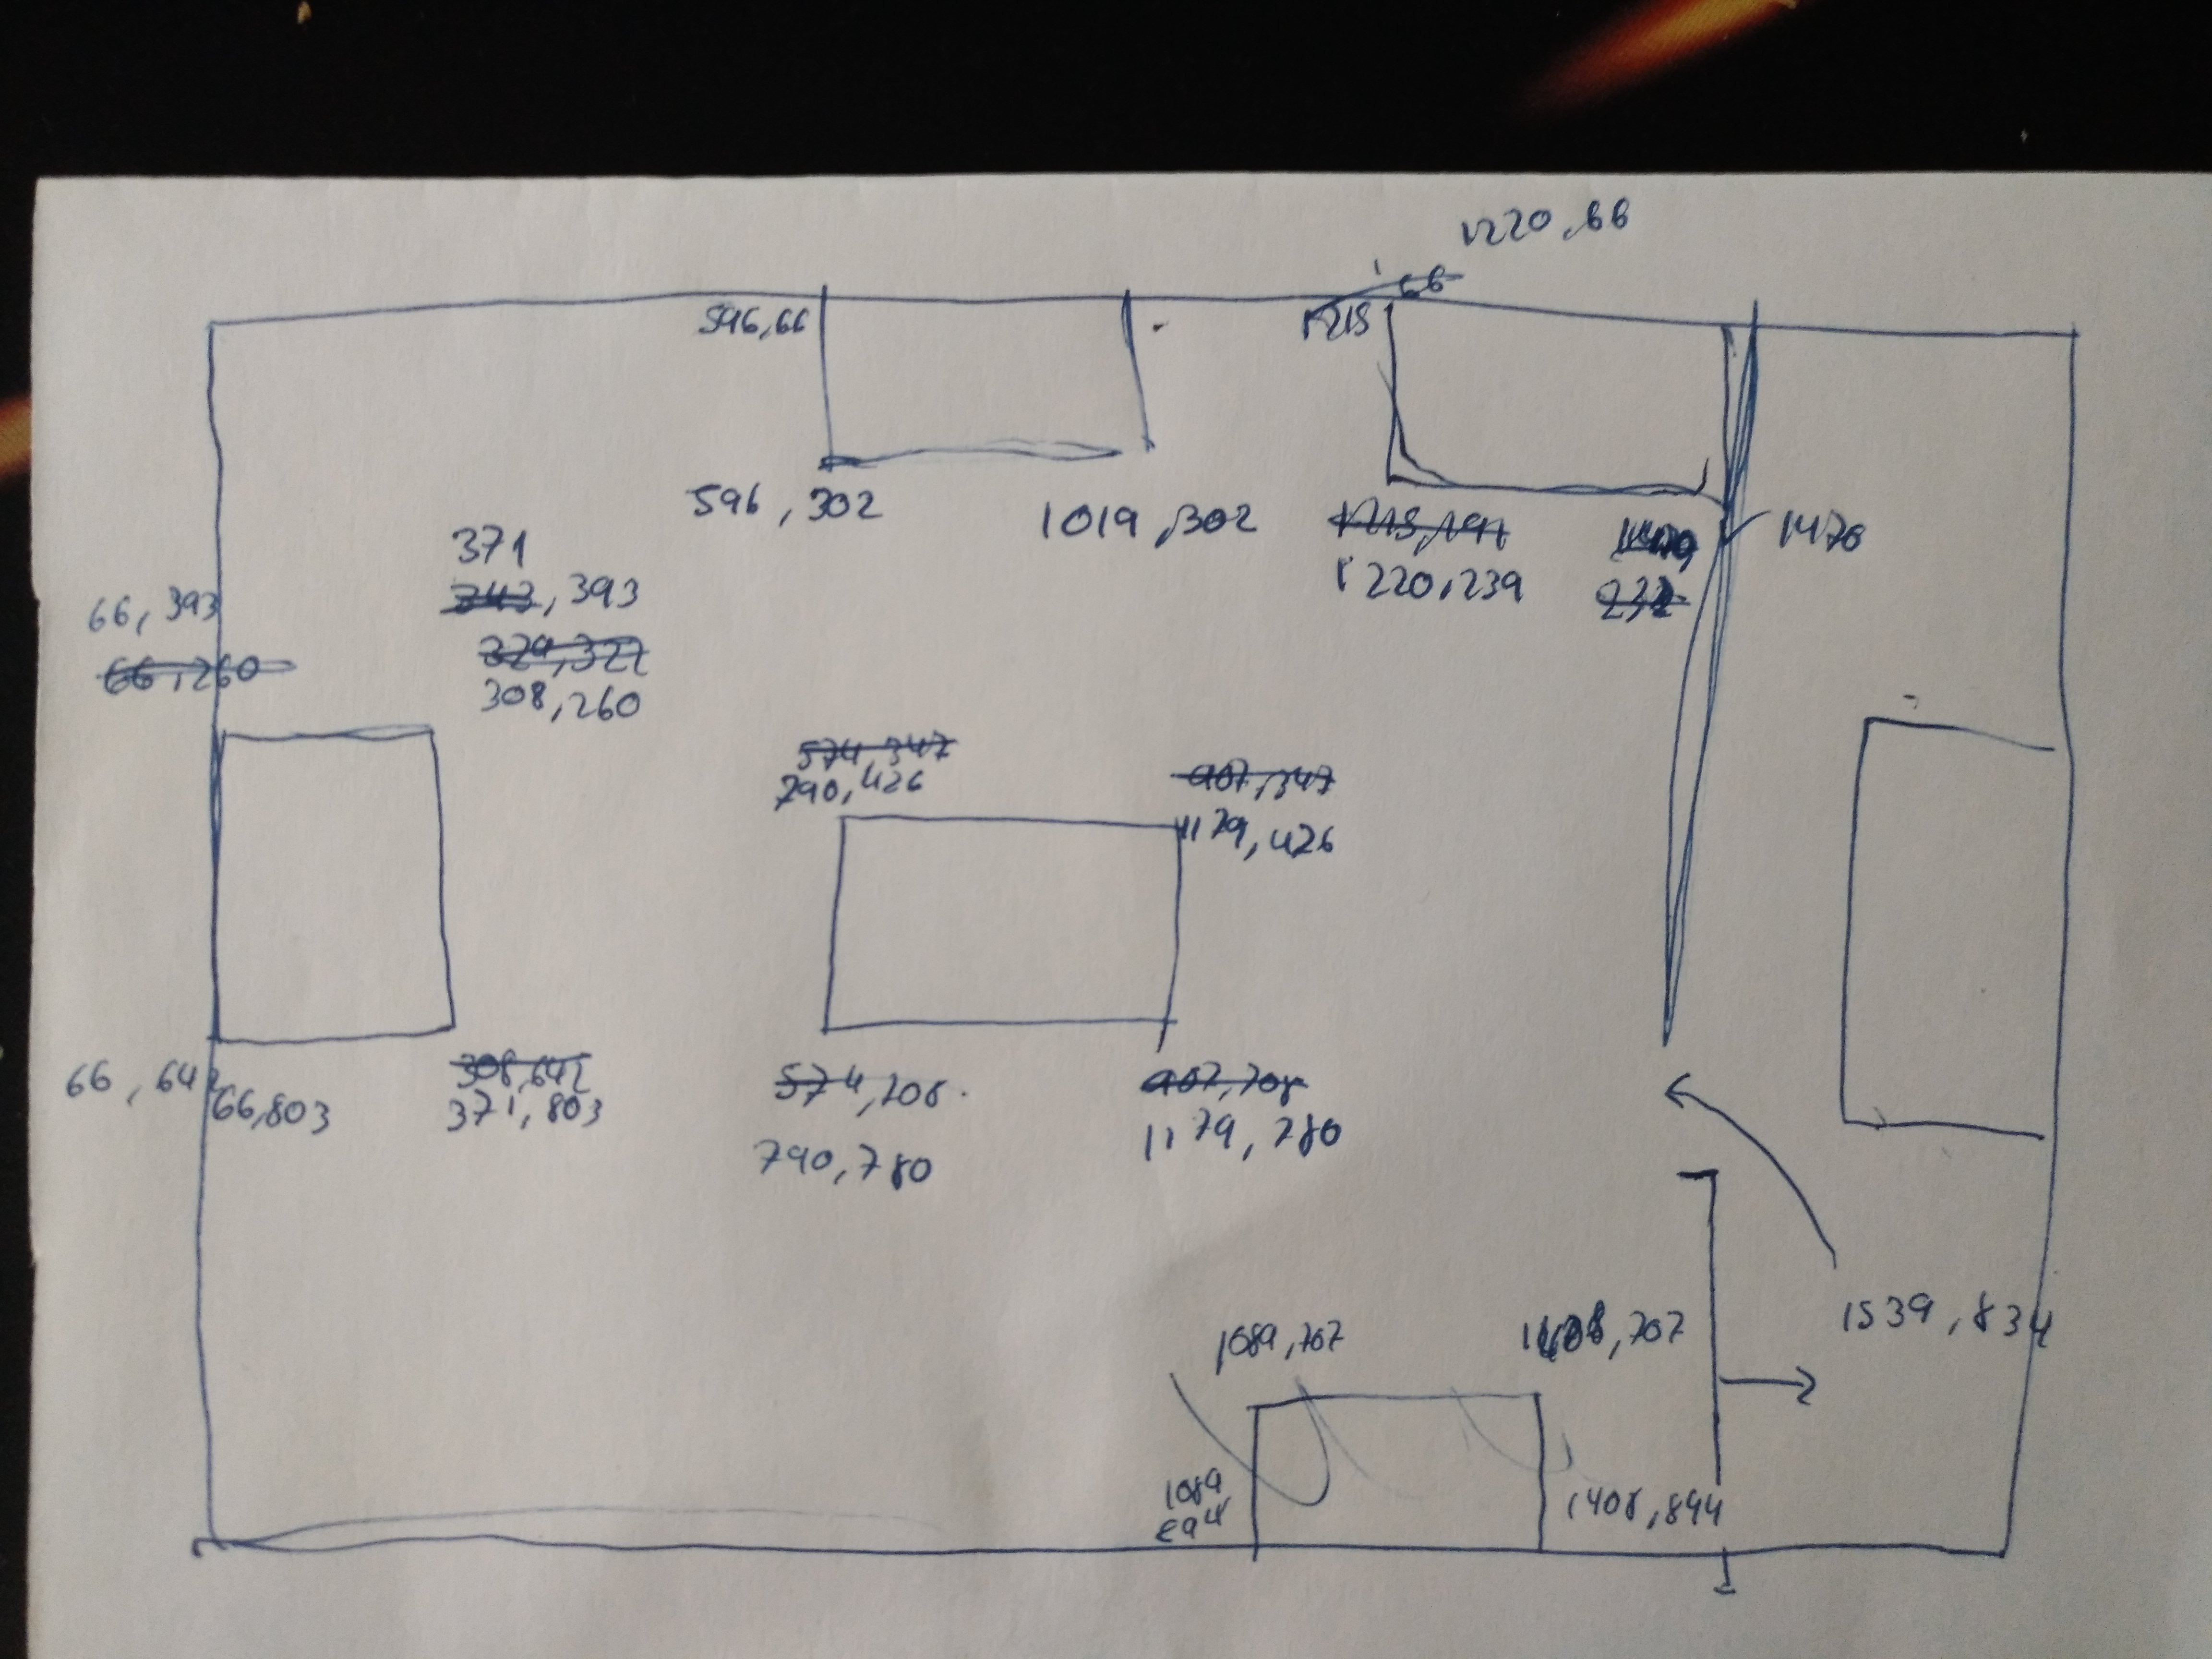 1220,66
66
596,66
1215
596,302
1019,302
1215,191
1470
1220,239
232
371
343,393
66,393
329,327
66,260
308,260
574,347
790,426
907,347
1179,426
66,642
66,803
308,642
371,803
574,708
790,780
907,708
1179,780
1539,834
1089,707
1408,707
1089,
894
1408,894